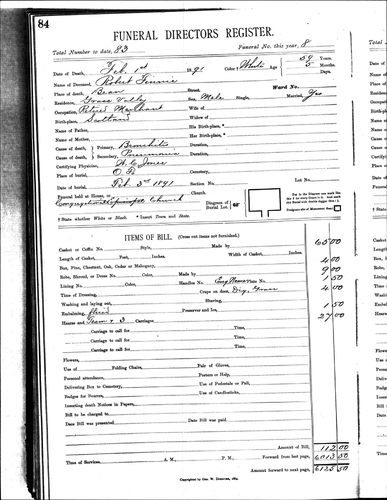 84
FUNERAL DIRECTORS REGISTER.
Total Number to date, 83 Funeral No. this year, 8
Date of Death, Feb. 1st 1891 Color † White Age 59 Years
5 Months
Days.
Name of Deceased, Robert Finnie
Place of death, Bear Street, Ward No.
Residence, Grass Valley Sex, Male Single, Married, Yes
Occupation, Retired Merchant Wife of
Birth-place, Scotland Widow of
Name of Father, His Birth-place,*
Name of Mother, Her Birth-place,*
Cause of death, Primary, Bronchitis Duration,
Cause of death, Secondary, Pneumonia Duration,
Certifying Physician, W. C. Jones Cemetery.
Place of burial, O. F. Lot No.
Date of burial, Feb. 3rd 1891 Section No.
Funeral held at House, or Church.
Congregational Church
Diagram of Burial Lot.
† State whether White or Black. * Insert Town and State.
ITEMS OF BILL. (Cross out items not furnished.)
Casket or Coffin No. Style, Made by 65.00
Length of Casket, Feet, Inches. Width of Casket, Inches.
Box, Pine, Chestnut, Oak, Cedar or Mahogany, 4.00
Robe, Shroud, or Dress No. Color, Made by 9.00
Lining No. Color, Handles No. Plate No. 1.50
Time of Dressing, Crape on door, Dig. Grave 4.00
Washing and laying out, Shaving,
Embalming, fluid Preserver and Ice, 1.50
Hearse and Team & 3 Carriages, 27.00
Carriage to call for Time,
Carriage to call for Time,
Carriage to call for Time,
Flowers,
Use of Folding Chairs, Pair of Gloves,
Personal attendance, Porters or Help,
Delivering Box to Cemetery, Use of Pedestals or Pall,
Badges for Bearers, Use of Candlesticks,
Inserting death Notices in Papers,
Bill to be charged to
Date Bill was presented Date Bill was paid
Amount of Bill, 112 00
Time of Services, A. M., P. M., Forward from last page, 6013 50
Amount forward to next page, 6125 50